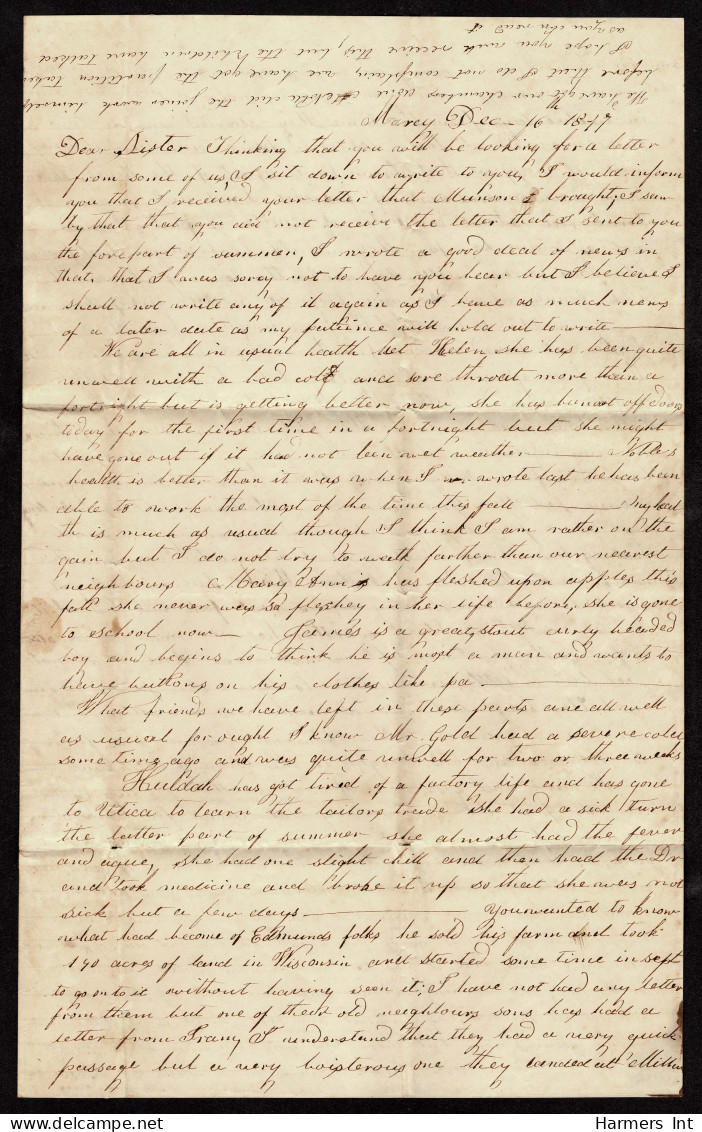 We have got our chambers done Noble did the joiner work himself
before that I do not complain, we have got the partition taken
I hope you will receive this, but the children have talked
as you can read it
Marcy Dec - 16th 1847
Dear Sister Thinking that you will be looking for a letter
from some of us, I sit down to write to you, I would inform
you that I received your letter that Munson brought, I saw
by that that you did not receive the letter that I sent to you
the forepart of summer, I wrote a good deal of news in
that, that I was soray not to have you hear but I believe I
shall not write any of it again as I have as much news
of a later date as my patience will hold out to write
We are all in usual health but Helen she has been quite
unwell with a bad cold and sore throat more than a
fortnight but is getting better now, she has been out of doors
today for the first time in a fortnight but she might
have gone out if it had not been wet weather Nobles
health is better than it was when I wrote last he has been
able to work the most of the time this fall my heal
th is much as usual though I think I am rather on the
gain but I do not try to walk farther than our nearest
neighbours Mary Ann has fleshed upon apples this
fall she never was so fleshey in her life before, she is gone
to school now James is a great stout curly headed
boy and begins to think he is most a man and wants to
have buttons on his clothes like pa
What friends we have left in these parts are all well
as usual for ought I know Mr. Gold had a severe cold
some time ago and was quite unwell for two or three weeks
Huldah has got tired of a factory life and has gone
to Utica to learn the tailors trade she had a sick turn
the latter part of summer she almost had the fever
and ague, she had one slight chill and then had the Dr
and took medicine and broke it up so that she was not
sick but a few days You wanted to know
what had become of Edmunds folks he sold his farm and took
190 acres of land in Wisconsin and started some time in sept
to go on to it without having seen it; I have not had any letter
from them but one of their old neighbours sons has had a
letter from I understand that they had a very quick
passage but a very boisterous one they landed at Millw
Harmers Int